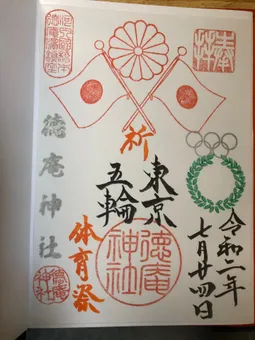 奉拝
令和二年
七月廿四日
祈
東京
五輪
体育祭
徳庵
神社
徳庵神社
徳庵
神社